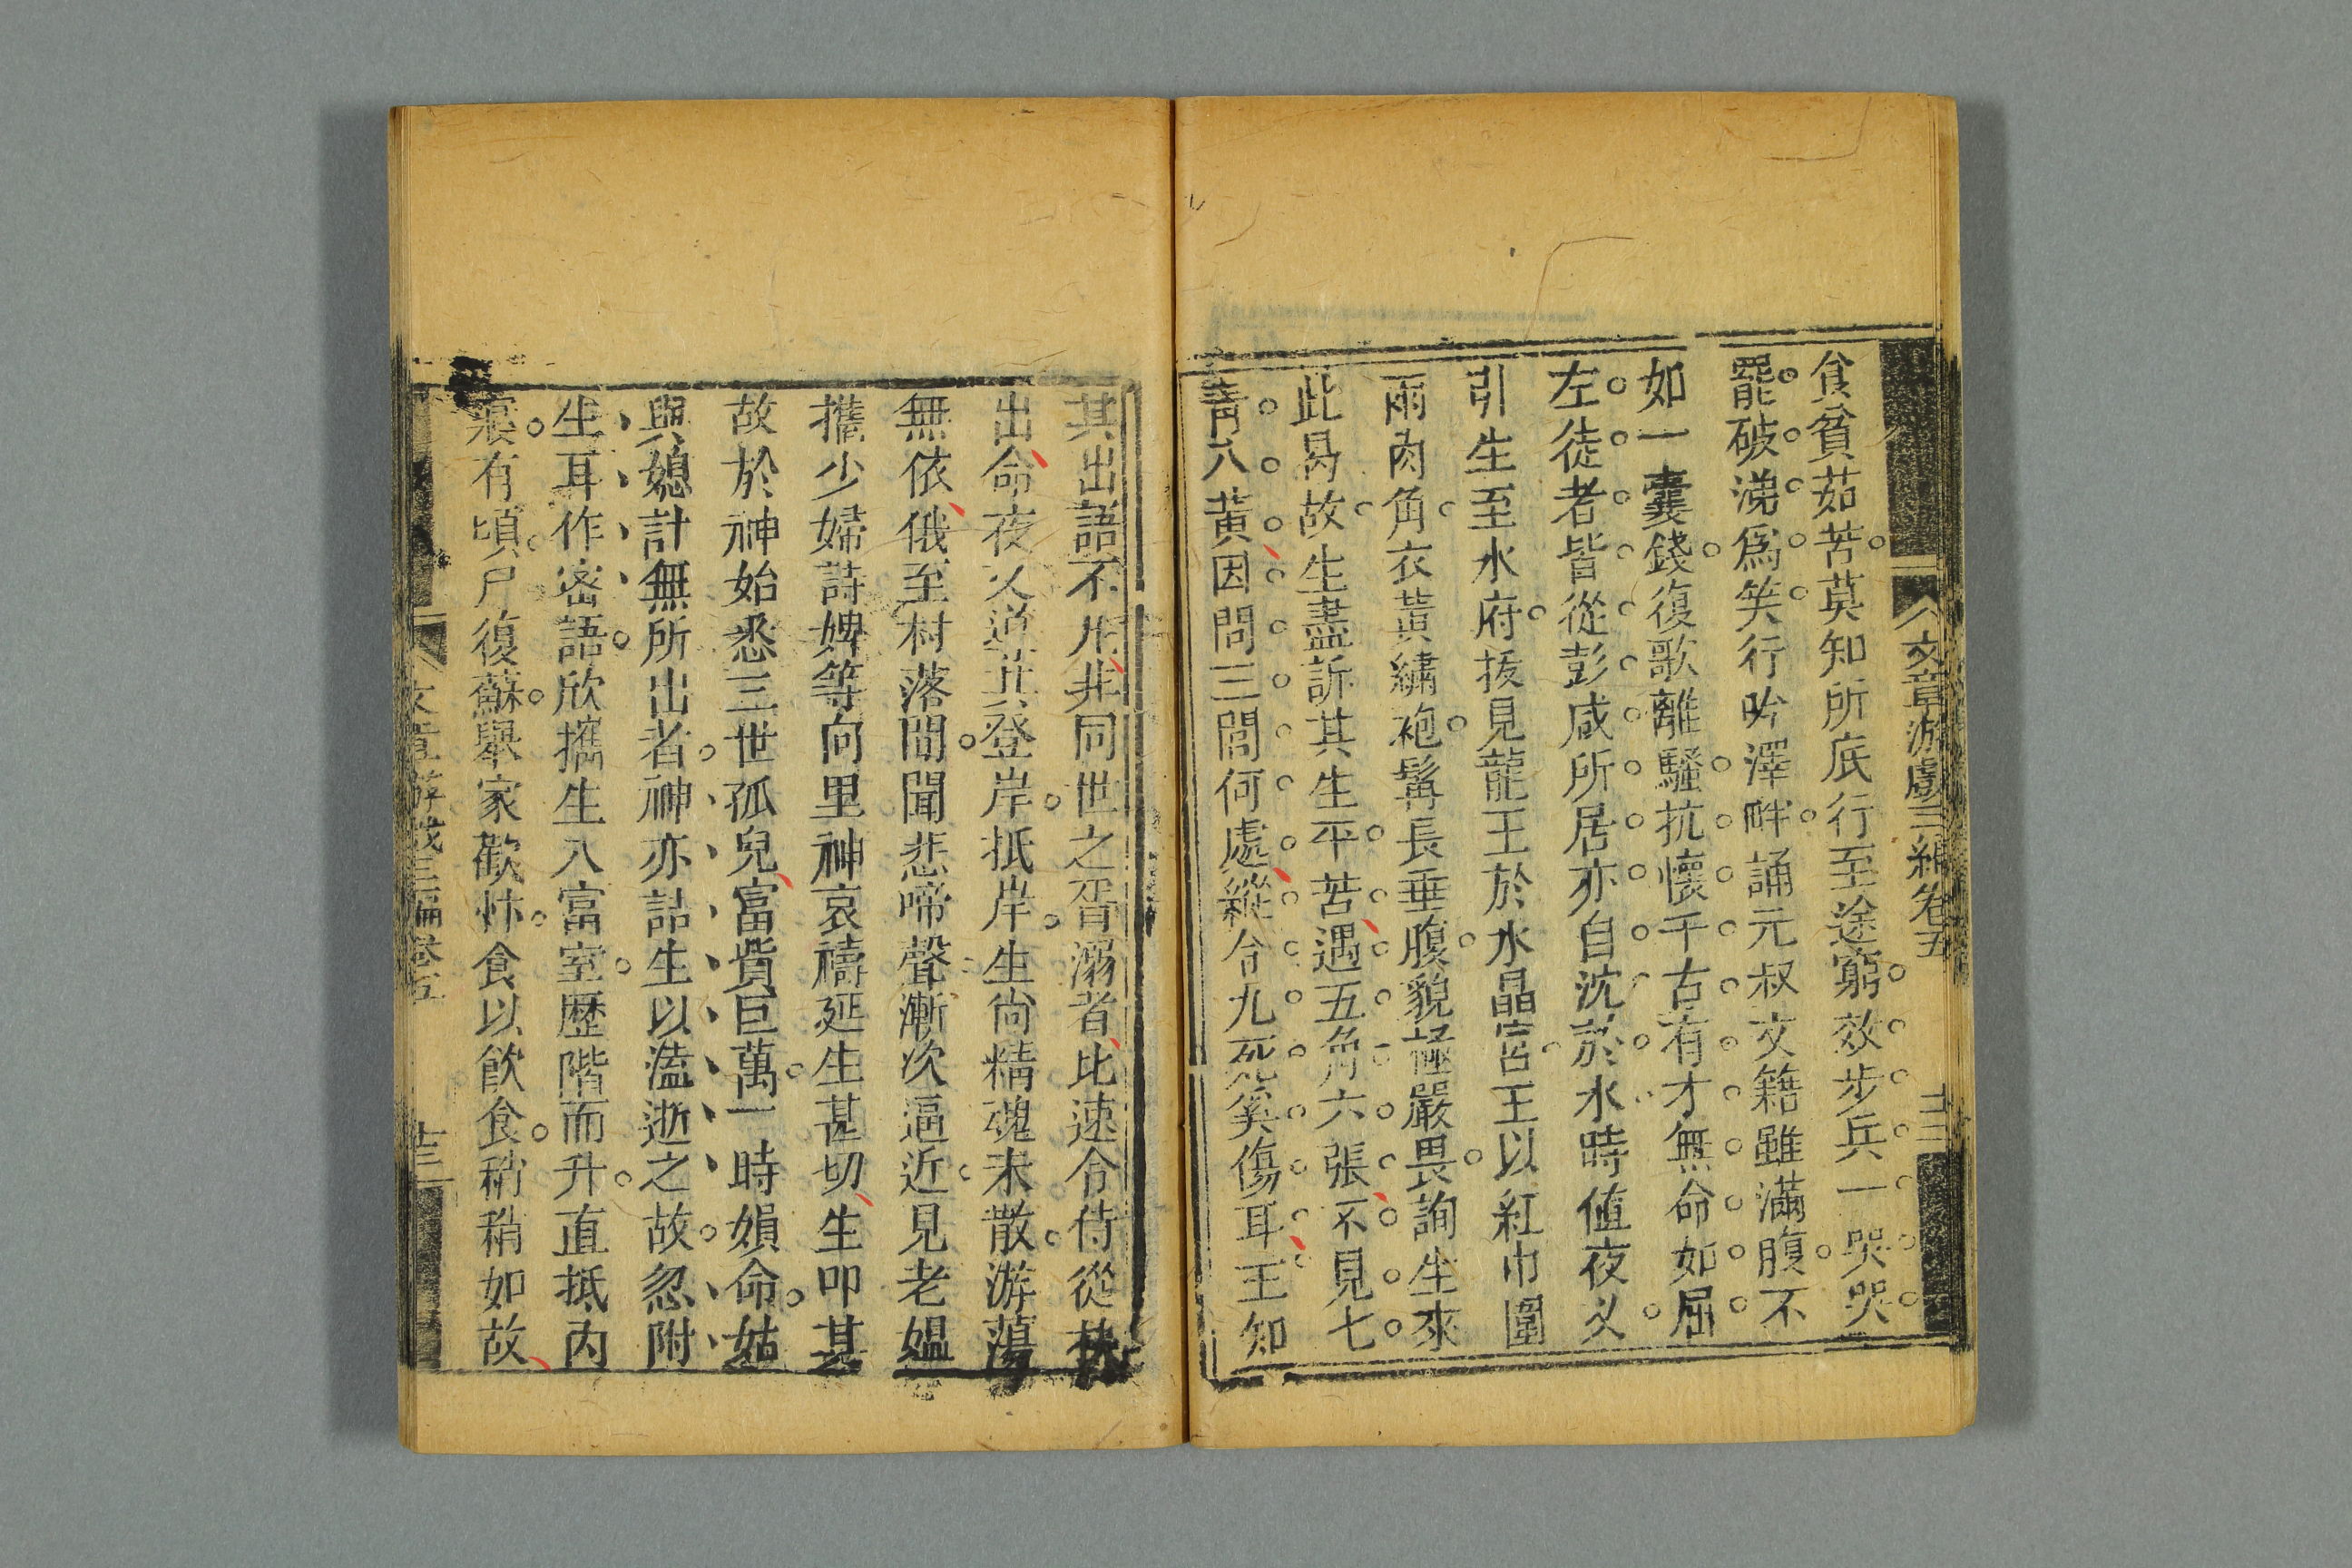 文章游戲三編卷五 十三
食貧茹苦莫知所底行至途窮效步兵一哭哭
罷破涕爲笑行吟澤畔誦元叔文籍雖滿腹不
如一囊錢復歌離騷抗懷千古有才無命如屈
左徒者皆從彭咸所居亦自沈於水時値夜乂
引生至水府拔見龍王於水晶宮王以紅巾圍
兩肉角衣黃繡袍髯長垂腹貌極嚴畏詢生來
此曷故生盡訴其生平苦遇五角六張不見七
靑八黃因問三閭何處縱合九死奚傷耳王知
其出語不凡非同世之胥溺者比速令侍從扶
出命夜乂道其登岸抵岸生尙精魂未散游蕩
無依俄至村落間聞悲啼聲漸次逼近見老媼
攜少婦詩婢等向里神哀禱延生甚切生叩其
故於神始悉三世孤兒富貲巨萬一時娟命姑
與媳計無所出者神亦詰生以溘逝之故忽附
生耳作密語欣攜生入富室歷階而升直抵內
寢有頃尸復蘇舉家歡忭食以飮食稍稍如故
文章游戲三編卷五 十三